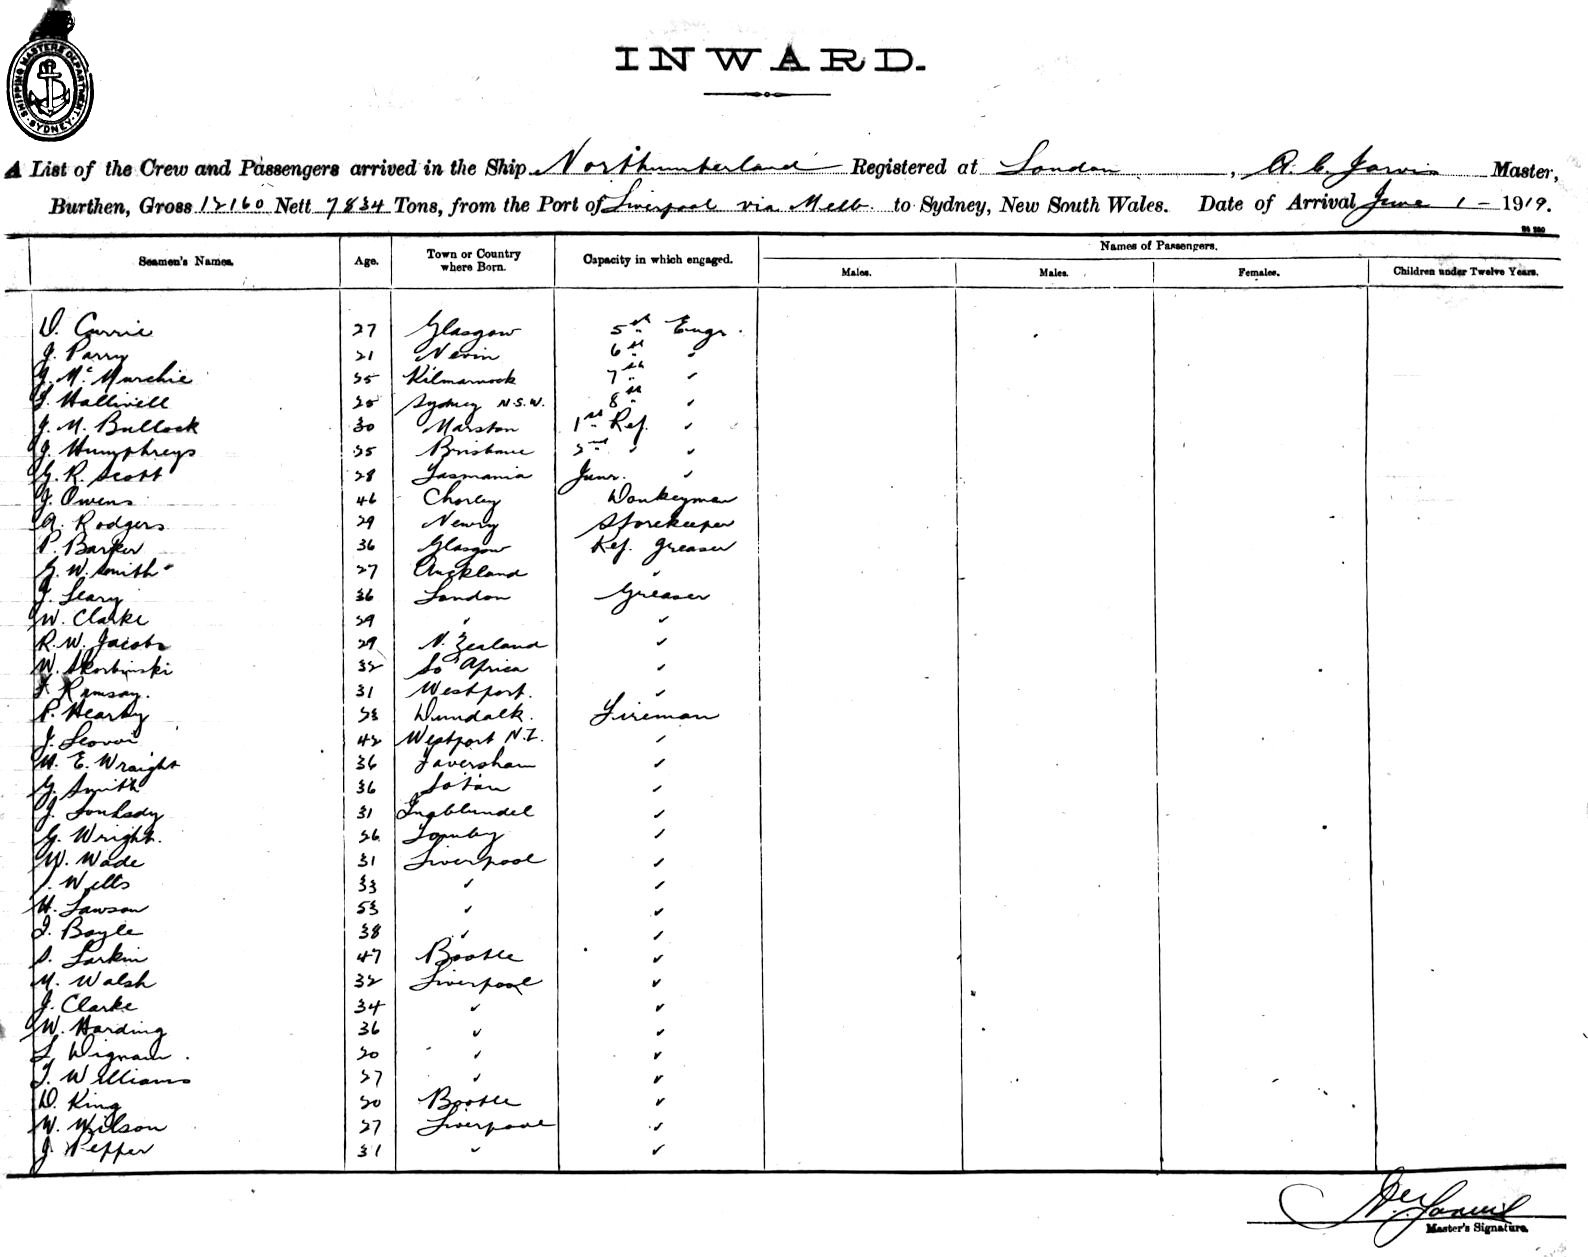 SHIPPING MASTERS DEPARTMENT. SYDNEY
INWARD.
A List of the Crew and Passengers arrived in the Ship Northumberland Registered at London, A. C. Jarvis Master,
Burthen, Gross 12160 Nett 7834 Tons, from the Port of Liverpool via Melb. to Sydney, New South Wales. Date of Arrival June 1 - 1919.
Names of Passengers.
Seamen's Names. Age. Town or Country where Born. Capacity in which engaged. Males. Males. Females. Children under Twelve Years.
D. Currie 27 Glasgow 5th Engr.
J. Parry 21 Nevin 6th "
J. McMurchie 25 Kilmarnock 7th "
J. Halliwell 25 Sydney N.S.W. 8th "
J. M. Bullock 30 Marston 1st Ref. "
J. Humphreys 25 Brisbane 2nd " "
G. R. Scott 28 Tasmania Junr. "
J. Owens 46 Chorley Donkeyman
A. Rodgers 29 Newry Storekeeper
P. Barker 36 Glasgow Ref. Greaser
G. W. Smith 27 Auckland "
J. Leary 36 London Greaser
W. Clarke 29 " "
R. W. Jacobs 29 N. Zealand "
W. Skorbinski 32 So Africa "
F. Ramsay. 31 Westport. "
P. Hearty 28 Dundalk. Fireman
J. 42 Westport N.Z. "
W. E. Wraight 36 Faversham "
G. Smith 36 Soton "
J. 31 "
G. Wright. 26 "
W. Wade 31 Liverpool "
Wells 33 " "
H. Lawson 53 " "
J. Boyle 38 " "
S. Larkin 47 Bootle "
M. Walsh 32 Liverpool "
J. Clarke 34 " "
W. Harding 36 " "
L. Wignall 20 " "
T. Williams 27 " "
D. King 20 Bootle "
W. Wilson 27 Liverpool "
J. Pepper 31 " "
Master's Signature.